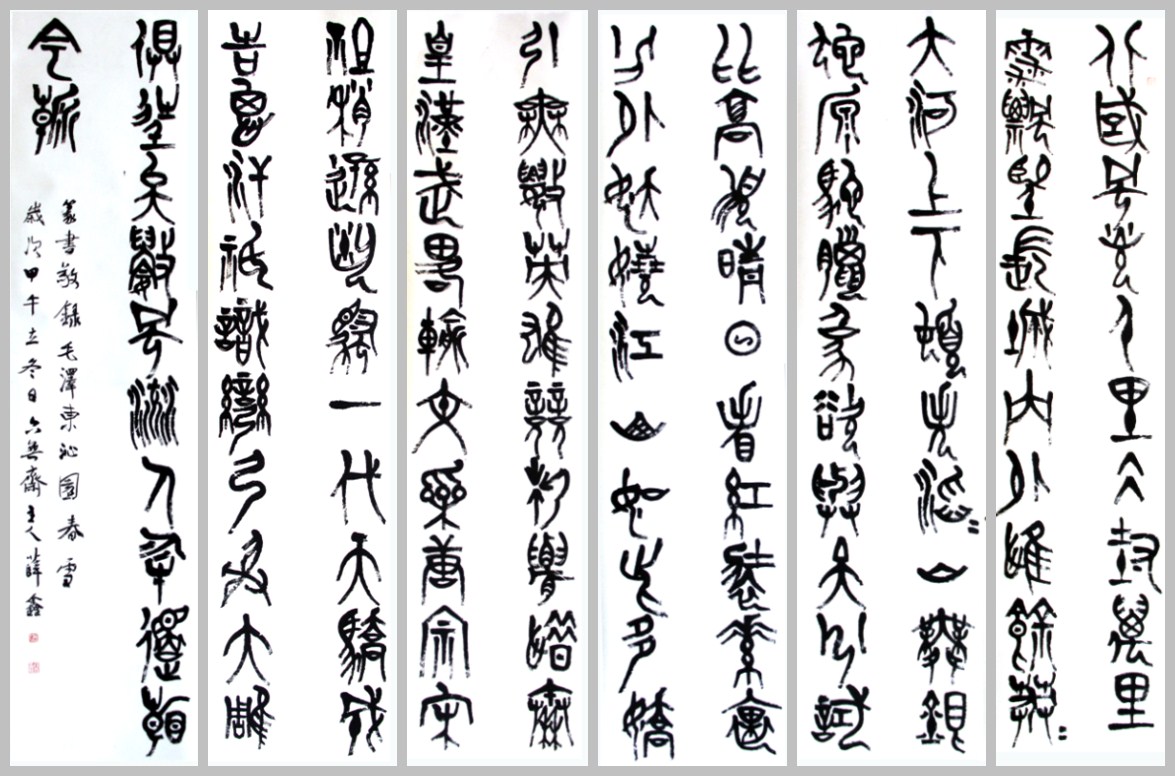 北國風光千里冰封萬里
雪飄望長城內外惟餘莽〻
大河上下頓失滔〻山舞銀
蛇原馳蠟象欲與天公試
比高須晴日看紅裝素裹
分外妖嬈江山如此多嬌
引無數英雄競折腰惜秦
皇漢武略輸文采唐宗宋
祖稍遜風騷一代天驕成
吉思汗祇識彎弓射大雕
俱往矣數風流人物還看
今朝
篆書敬錄毛澤東沁園春雪
歲次甲午立冬日六無齋主人薛鑫